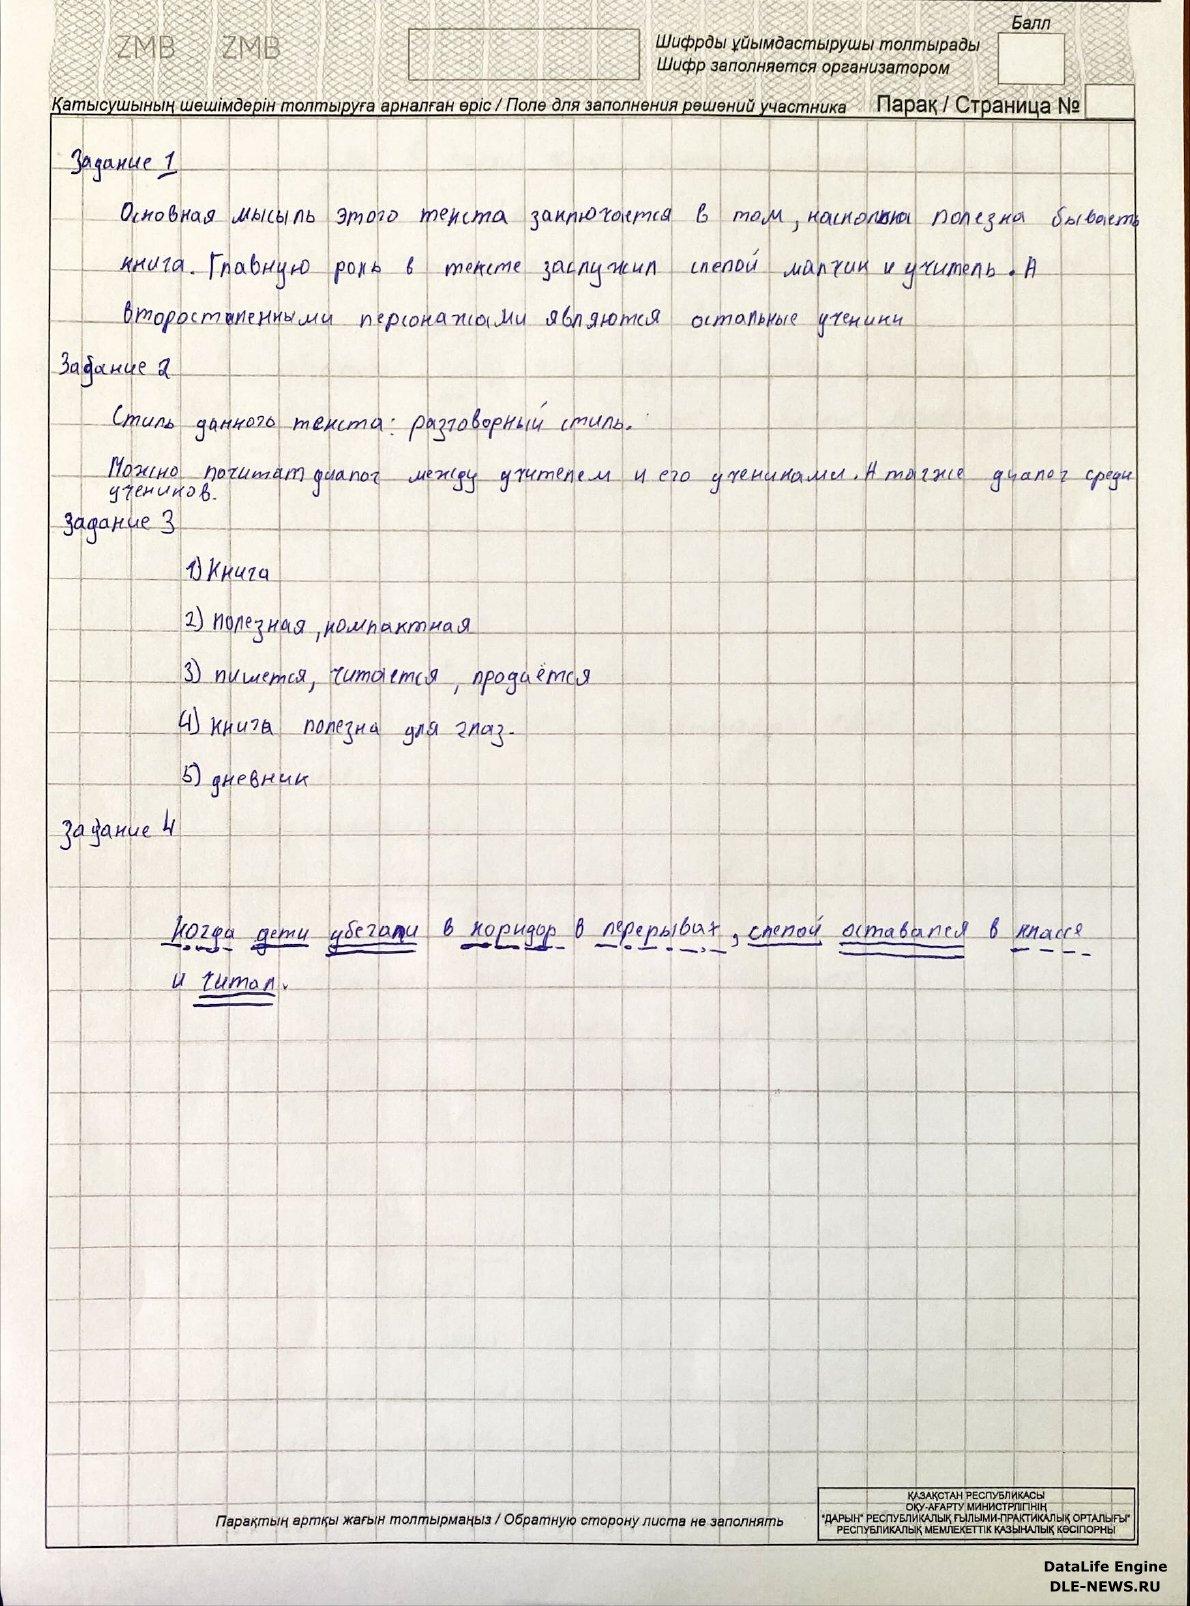 ZMB ZMB
Балл
Шифрды ұйымдастырушы толтырады
Шифр заполняется организатором
Қатысушының шешімдерін толтыруға арналған өріс / Поле для заполнения решений участника Парақ / Страница №
Задание 1
Основная мысыль этого текста заключается в том, насколька полезна бывает
книга. Главную роль в тексте заслужил слепой малчик и учитель. А
второстипенными персонажами являются остальные ученики
Задание 2
Стиль данного текста: разговорный стиль.
Можно почитат диалог между учителем и его учениками. А тагже диалог среди
учеников.
Задание 3
1) Книга
2) полезная, компактная
3) пишется, читается, продаётся
4) книга полезна для глаз.
5) дневник
Задание 4
Когда дети убегали в коридор в перерывах, слепой оставался в классе
и читал.
Парақтың артқы жағын толтырмаңыз / Обратную сторону листа не заполнять
ҚАЗАҚСТАН РЕСПУБЛИКАСЫ
ОҚУ-АҒАРТУ МИНИСТРЛІГІНІҢ
"ДАРЫН" РЕСПУБЛИКАЛЫҚ ҒЫЛЫМИ-ПРАКТИКАЛЫҚ ОРТАЛЫҒЫ"
РЕСПУБЛИКАЛЫҚ МЕМЛЕКЕТТІК ҚАЗЫНАЛЫҚ КӘСІПОРНЫ
DataLife Engine
DLE-NEWS.RU